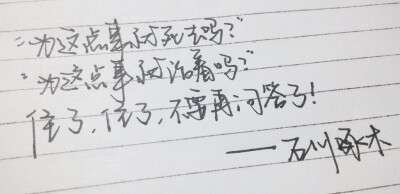 “为这点事就死去吗?”
“为这点事就活着吗?”
住了,住了,不要再问答了!
——石川啄木